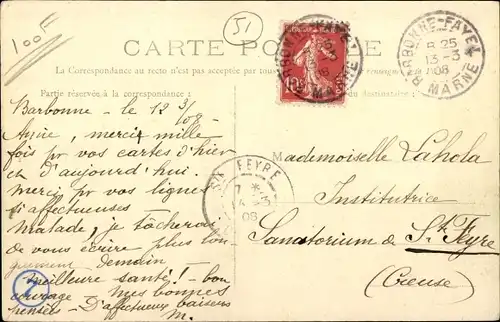 100F
51
CARTE POSTALE
La Correspondance au recto n'est pas acceptée par tous
Partie réservée à la correspondance :
du destinataire :
BARBONNE-FAYEL
MARNE
10
BARBONNE-FAYEL
8 25
13-3
08
MARNE
Barbonne - le 12 3/08
Amie, merci mille
fois pr vos cartes d'hier
et d'aujourd'hui.
Merci pr vos lignes
si affectueuses -
Malade, je tâcherai
de vous écrire plus lon-
guement demain
Meilleure santé! - bon
courage Mes bonnes
pensées - D'affectueux baisers
M.
STE FEYRE
7 *
08
Mademoiselle Lahola
Institutrice
Sanatorium de Ste Feyre
(Creuse)